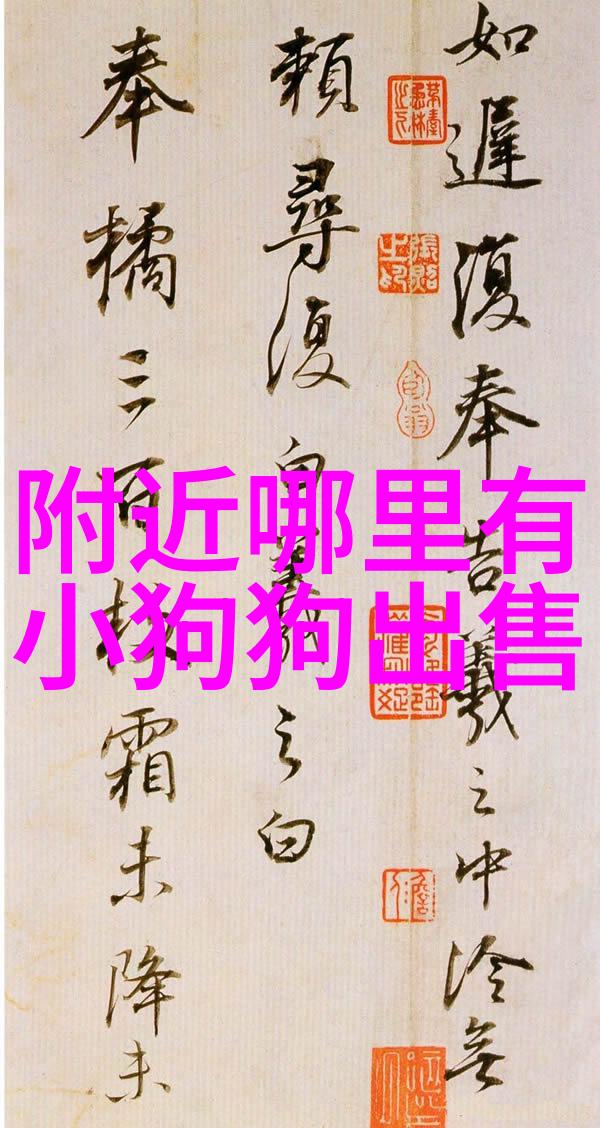 如遲復奉告羲之中冷無
賴尋復白羲之白
奉橘三百枚霜未降未
附近哪里有
小狗狗出售